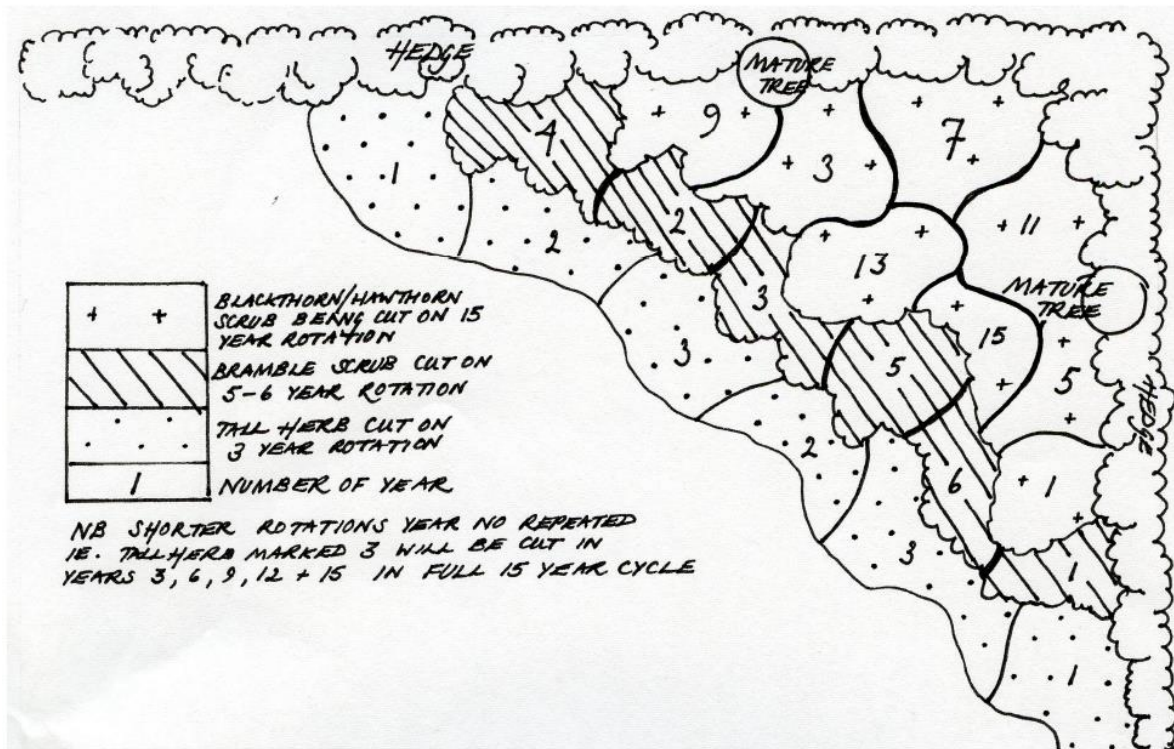 HEDGE
MATURE
TREE
4
9
3
7
1
2
2
11
13
3
MATURE
TREE
3
5
15
5
2
HEDGE
6
1
3
1
1
BLACKTHORN/HAWTHORN
SCRUB BEING CUT ON 15
YEAR ROTATION
BRAMBLE SCRUB CUT ON
5-6 YEAR ROTATION
TALL HERB CUT ON
3 YEAR ROTATION
1 NUMBER OF YEAR
NB SHORTER ROTATIONS YEAR NO REPEATED
IE. TALL HERB MARKED 3 WILL BE CUT IN
YEARS 3, 6, 9, 12 + 15 IN FULL 15 YEAR CYCLE